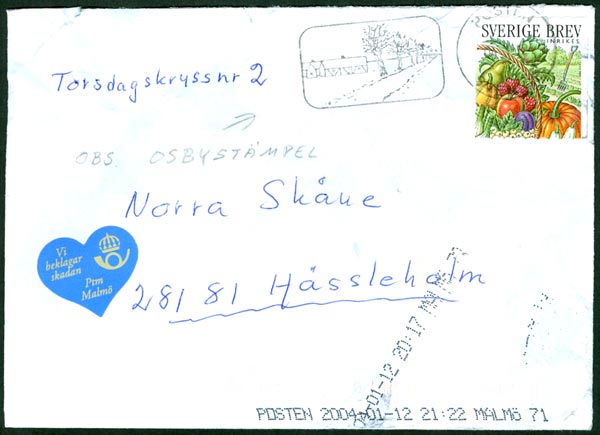 POSTEN
SVERIGE BREV
INRIKES
Torsdagskryss nr 2
OBS OSBYSTÄMPEL
Norra Skåne
Vi
beklagar
skadan
Ptm
Malmö
281 81 Hässleholm
-01-12 20:17
POSTEN 2004-01-12 21:22 MALMÖ 71